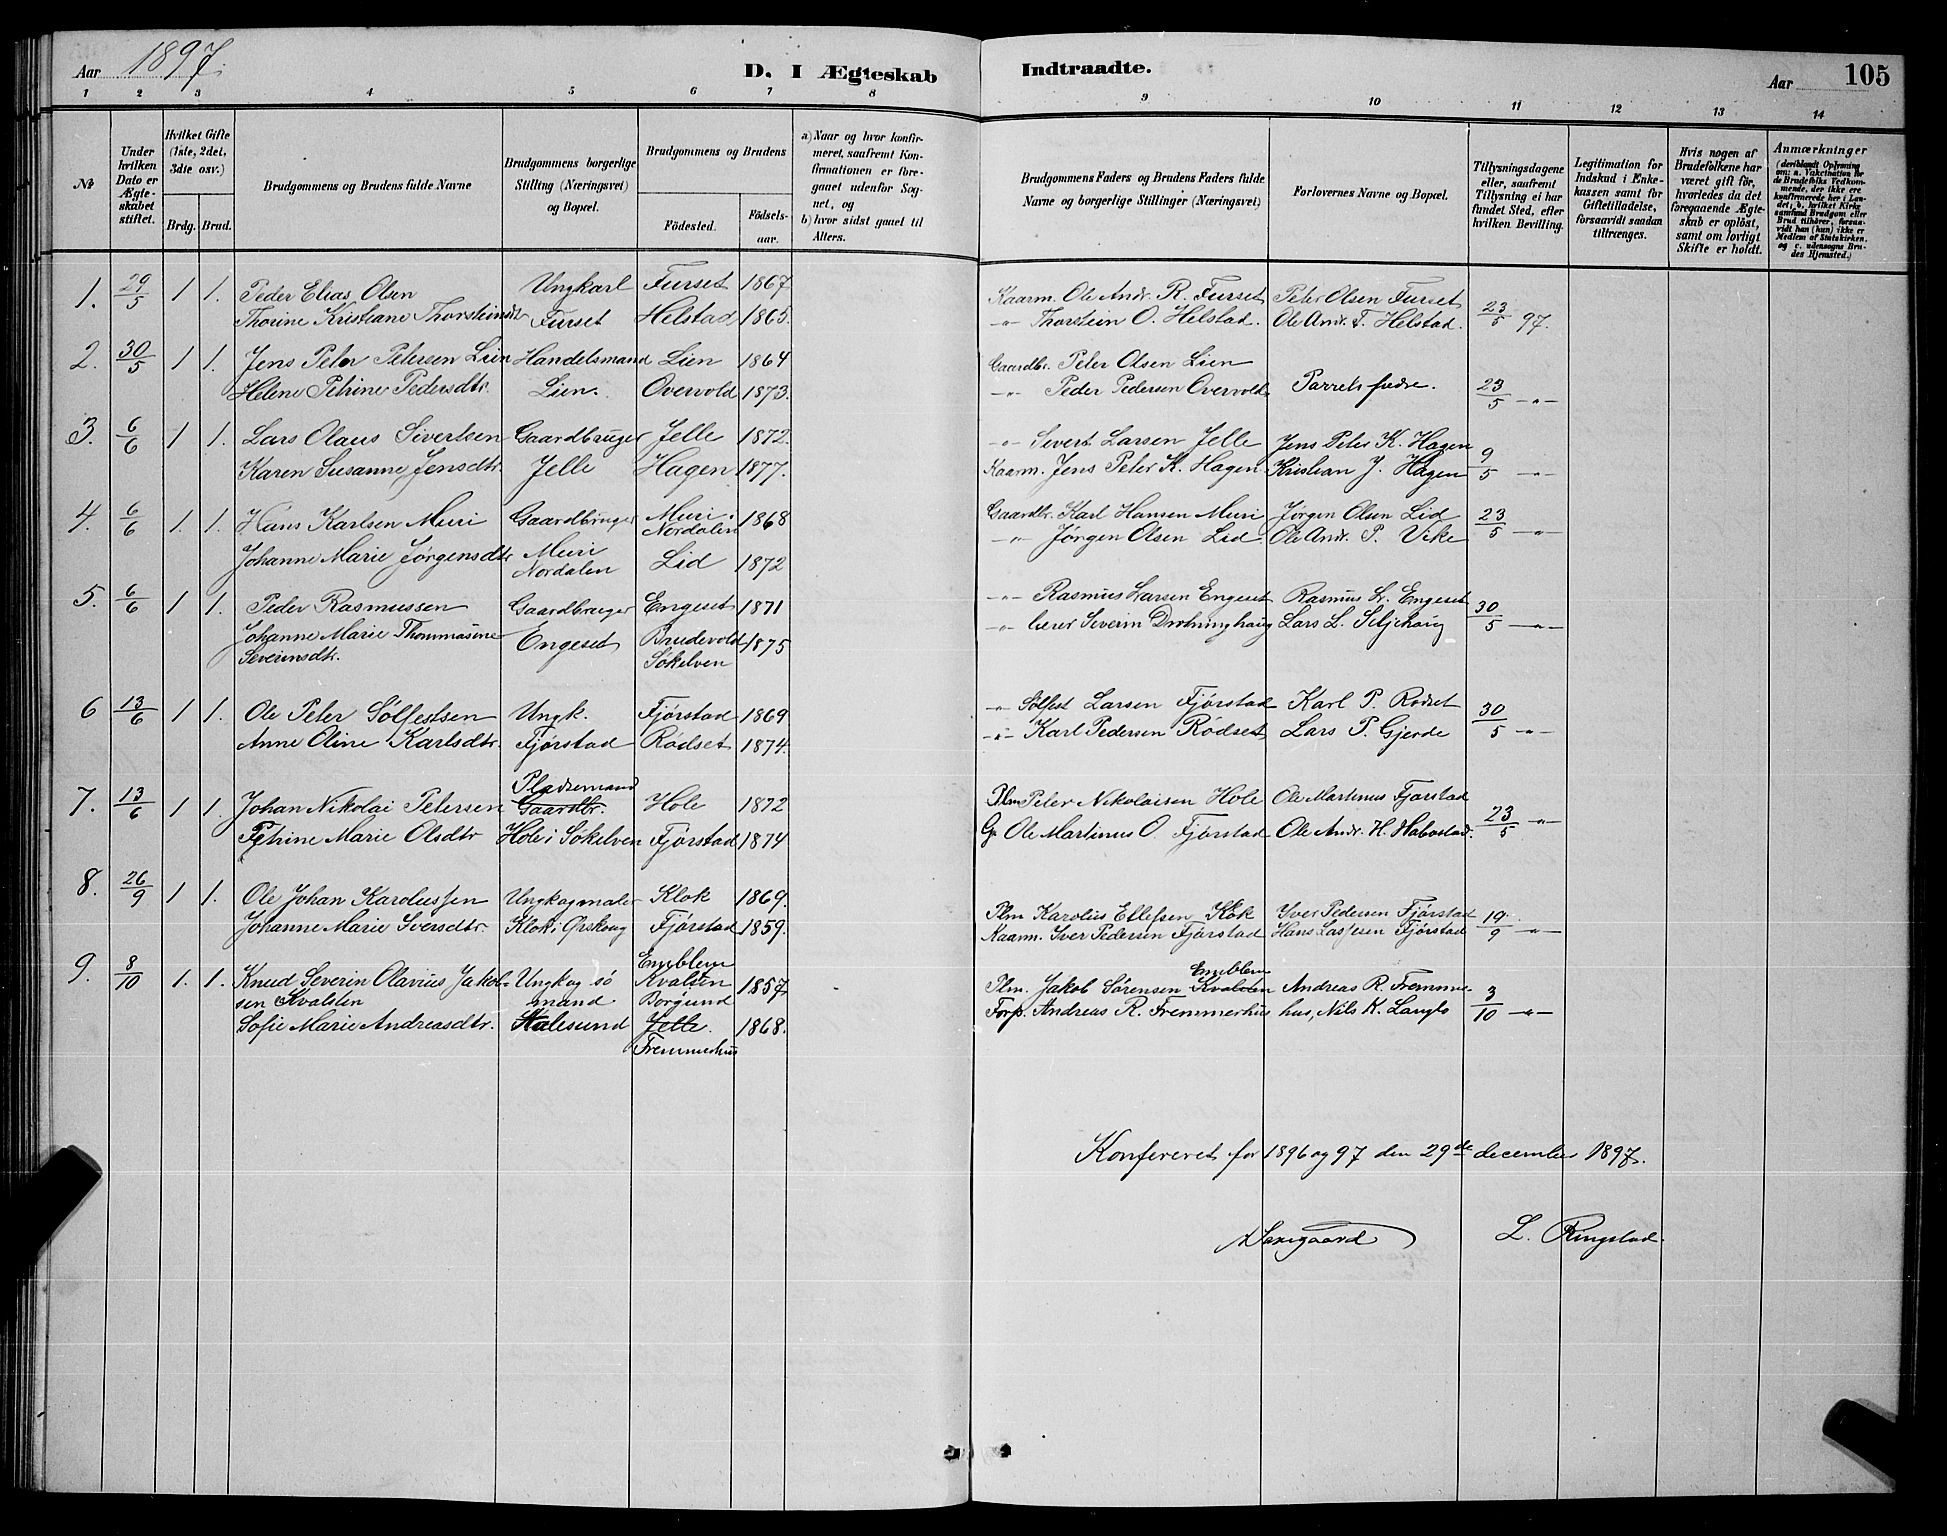 Aar 1897.
D. I Ægteskab Indtraadte.
Aar 105
1 2 3 4 5 6 7 8 9 10 11 12 13 14
№
Under hvilken Dato er Ægteskabet stiftet.
Hvilket Gifte (1ste, 2det, 3die osv.)
Brdg. Brud.
Brudgommens og Brudens fulde Navne
Brudgommens borgerlige Stilling (Næringsvei) og Bopæl.
Brudgommens og Brudens
Fødested. Fødselsaar.
a) Naar og hvor konfirmeret, saafremt Konfirmationen er foregaaet udenfor Sognet, og
b) hvor sidst gaaet til Alters.
Brudgommens Faders og Brudens Faders fulde Navne og borgerlige Stillinger (Næringsvei)
Forlovernes Navne og Bopæl.
Tillysningsdagene eller, saafremt Tillysning ei har fundet Sted, efter hvilken Bevilling.
Legitimation for Indskud i Enkekassen samt for Giftetilladelse, forsaavidt saadan tiltrænges.
Hvis nogen af Brudefolkene har været gift før, hvorledes da det foregaaende Ægteskab er opløst, samt om lovligt Skifte er holdt.
Anmærkninger (deriblandt Oplysning om: a. Vakcination for de Brudefolks Vedkommende, der ikke ere konfirmerede her i Landet; b. hvilket Kirkesamfund Brudgom eller Brud tilhører, forsaavidt han (hun) ikke er Medlem af Statskirken, og c. udensogns Brudes Hjemsted.)
1. 29/5 1 1. Peder Elias Olsen Ungkarl Furset 1867 Kaarm. Ole Andr. R. Furset Peter Olsen Furset 23/5 97.
Thorine Kristiane Thorsteinsdtr Furset Helstad 1865. -"- Thorstein O. Helstad. Ole Andr. T. Helstad.
2. 30/5 1 1. Jens Peter Petersen Lien Handelsmand Lien 1864 Gaardbr. Peter Olsen Lien
Helene Petrine Pedersdtr. Lien. Overvold 1873. -"- Peder Pedersen Overvold Parrets fædre. 23/5 -"-
3. 6/6 1 1. Lars Olaus Sivertsen Gaardbruger Jelle 1872. -"- Sivert Larsen Jelle Jens Peter K. Hagen 9/5 -"-
Karen Susanne Jensdtr. Jelle Hagen 1877. Kaarm. Jens Peter K. Hagen. Kristian J. Hagen
4. 6/6 1 1. Hans Karlsen Muri Gaardbruger Muri Nordalen 1868 Gaardbr. Karl Hansen Muri Jørgen Olsen Lid 23/5 -"-
Johanne Marie Jørgensdtr Muri Nordalen Lid 1872 -"- Jørgen Olsen Lid. Ole Andr. P. Vike
5. 6/6 1 1. Peder Rasmussen Gaardbruger Engeset 1871 -"- Rasmus Larsen Engeset Rasmus L. Engeset 30/5 -"-
Johanne Marie Thommasine Severinsdtr. Engeset Brudevold Søkelven 1875 -"- Severin Drotninghaug Lars L. Seljehaug
6 13/6 1 1. Ole Peter Sølfestsen Ungk. Fjørstad 1869 -"- Sølfest Larsen Fjørstad Karl P. Rødset 30/5 -"-
Anne Oline Karlsdtr. Fjørstad Rødset 1874. -"- Karl Pedersen Rødset Lars P. Gjerde
7. 13/6 1 1. Johan Nikolai Petersen Pladsemand Gaardbr. Hole 1872 Plm Peter Nikolaisen Hole Ole Martinus Fjørstad 23/5 -"-
Petrine Marie Olsdtr Hole i Søkelven Fjørstad 1874 G. Ole Martinus O. Fjørstad Ole Andr. H. Habostad.
8. 26/9 1 1. Ole Johan Karolussen Ungk og maler Klok 1869. Plm Karolus Ellefsen Klok Iver Pedersen Fjørstad 19/9 -"-
Johanne Marie Iversdtr. Klok i Ørskoug Fjørstad 1859. Kaarm. Iver Pedersen Fjørstad Hans Lassesen Fjørstad
9. 8/10 1. 1. Knud Severin Olavius Jakobsen Kvalsten Ungk og sømand Emblem Kvalsten Borgund 1857 Plm. Jakob Sørensen Emblem Kvalsten Andreas R. Fremmerhus, Nils K. Langlo 3/10 -"-
Sofie Marie Andreasdtr. Aalesund Jelle. Fremmerhus 1868. Forp. Andreas R. Fremmerhus
Konfereret for 1896 og 97 den 29de december 1897.
L. Ringstad.